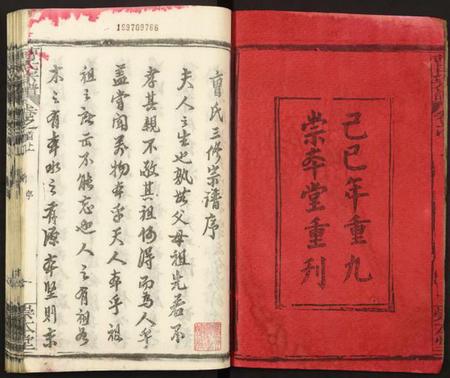 己巳年重九
崇本堂重刊
189709766
曹氏三修宗譜序
夫人之生也孰無父母祖先若不
孝其親不敬其祖何得而為人乎
蓋嘗聞萬物本乎天人本乎祖
祖之所
不能忘也人之有祖如
木之有本水之有源本堅則末